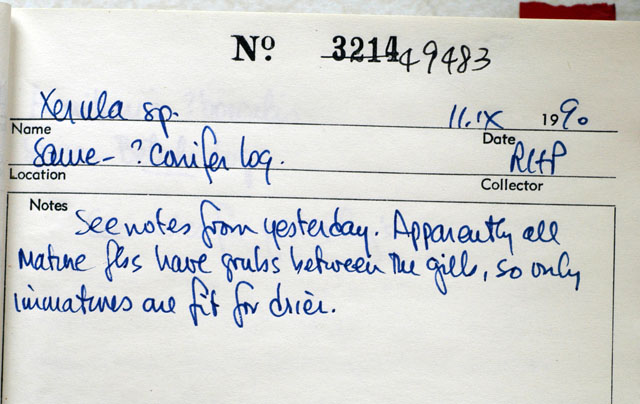 Nº 3214 49483
Xerula sp. 11.IX 1990
Name Date
Same - ? Conifer log. RHP
Location Collector
Notes
See notes from yesterday. Apparently all
mature fbs have grubs between the gills, so only
immatures are fit for drier.